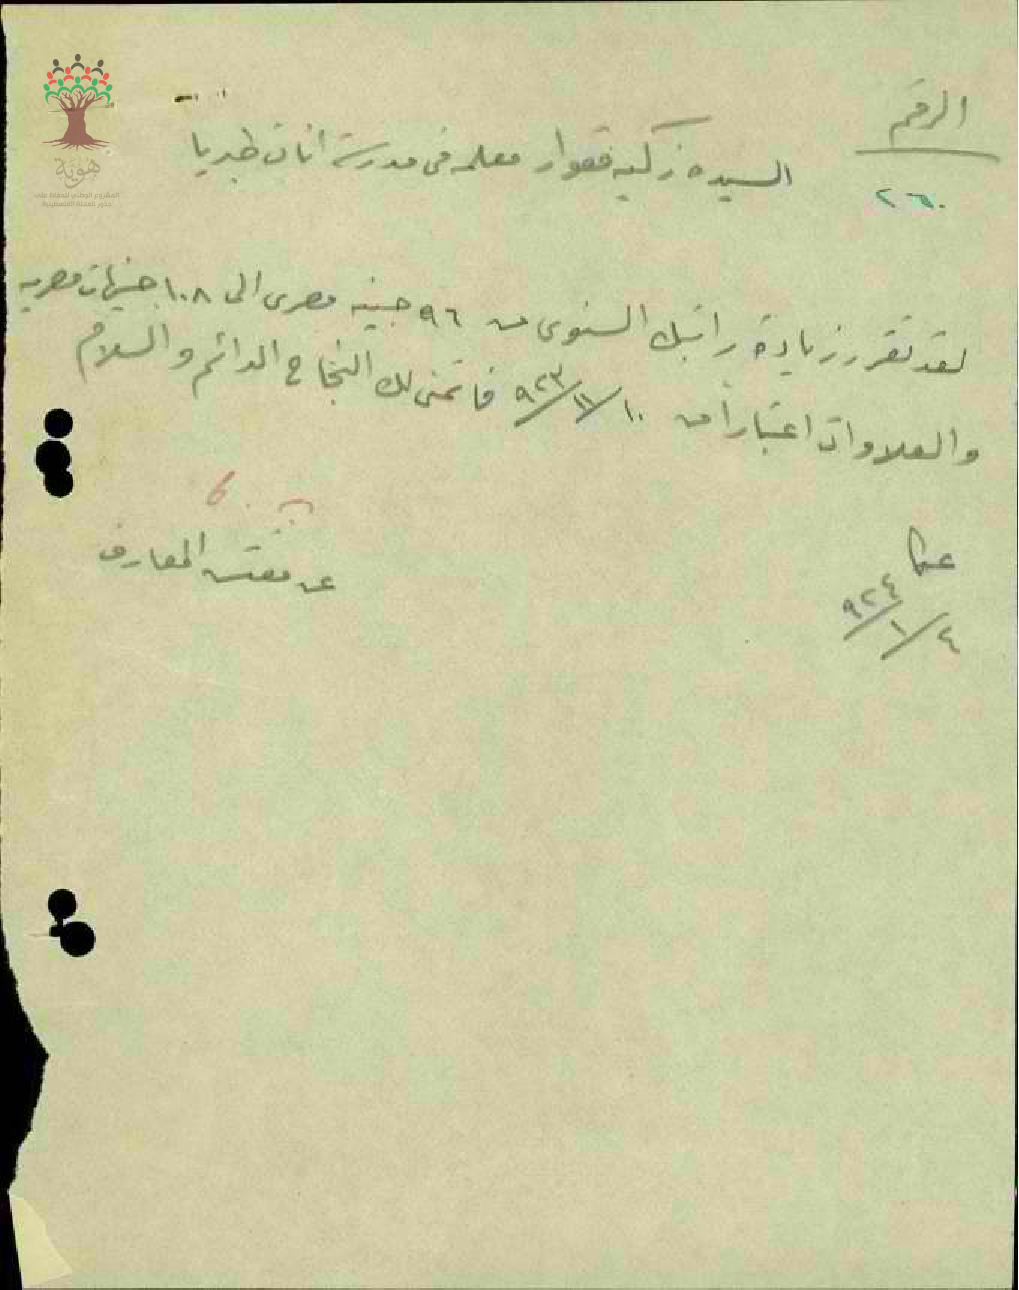 الرقم
٢٦٠
السيده زكيه قعوار معلمه فى مدرسة اناث طبريا
لقد تقرر زيادة راتبك السنوى من ٩٦ جنيه مصرى الى ١٠٨ جنيهات مصريه
والعلاوات اعتباراً من ١٠/١١/٩٢٣ فاتمنى لك النجاح الدائم والسلام
عكا
٤/١/٩٢٤
عن مفتش المعارف
هوية
المشروع الوطني للحفاظ على
جذور العائلة الفلسطينية